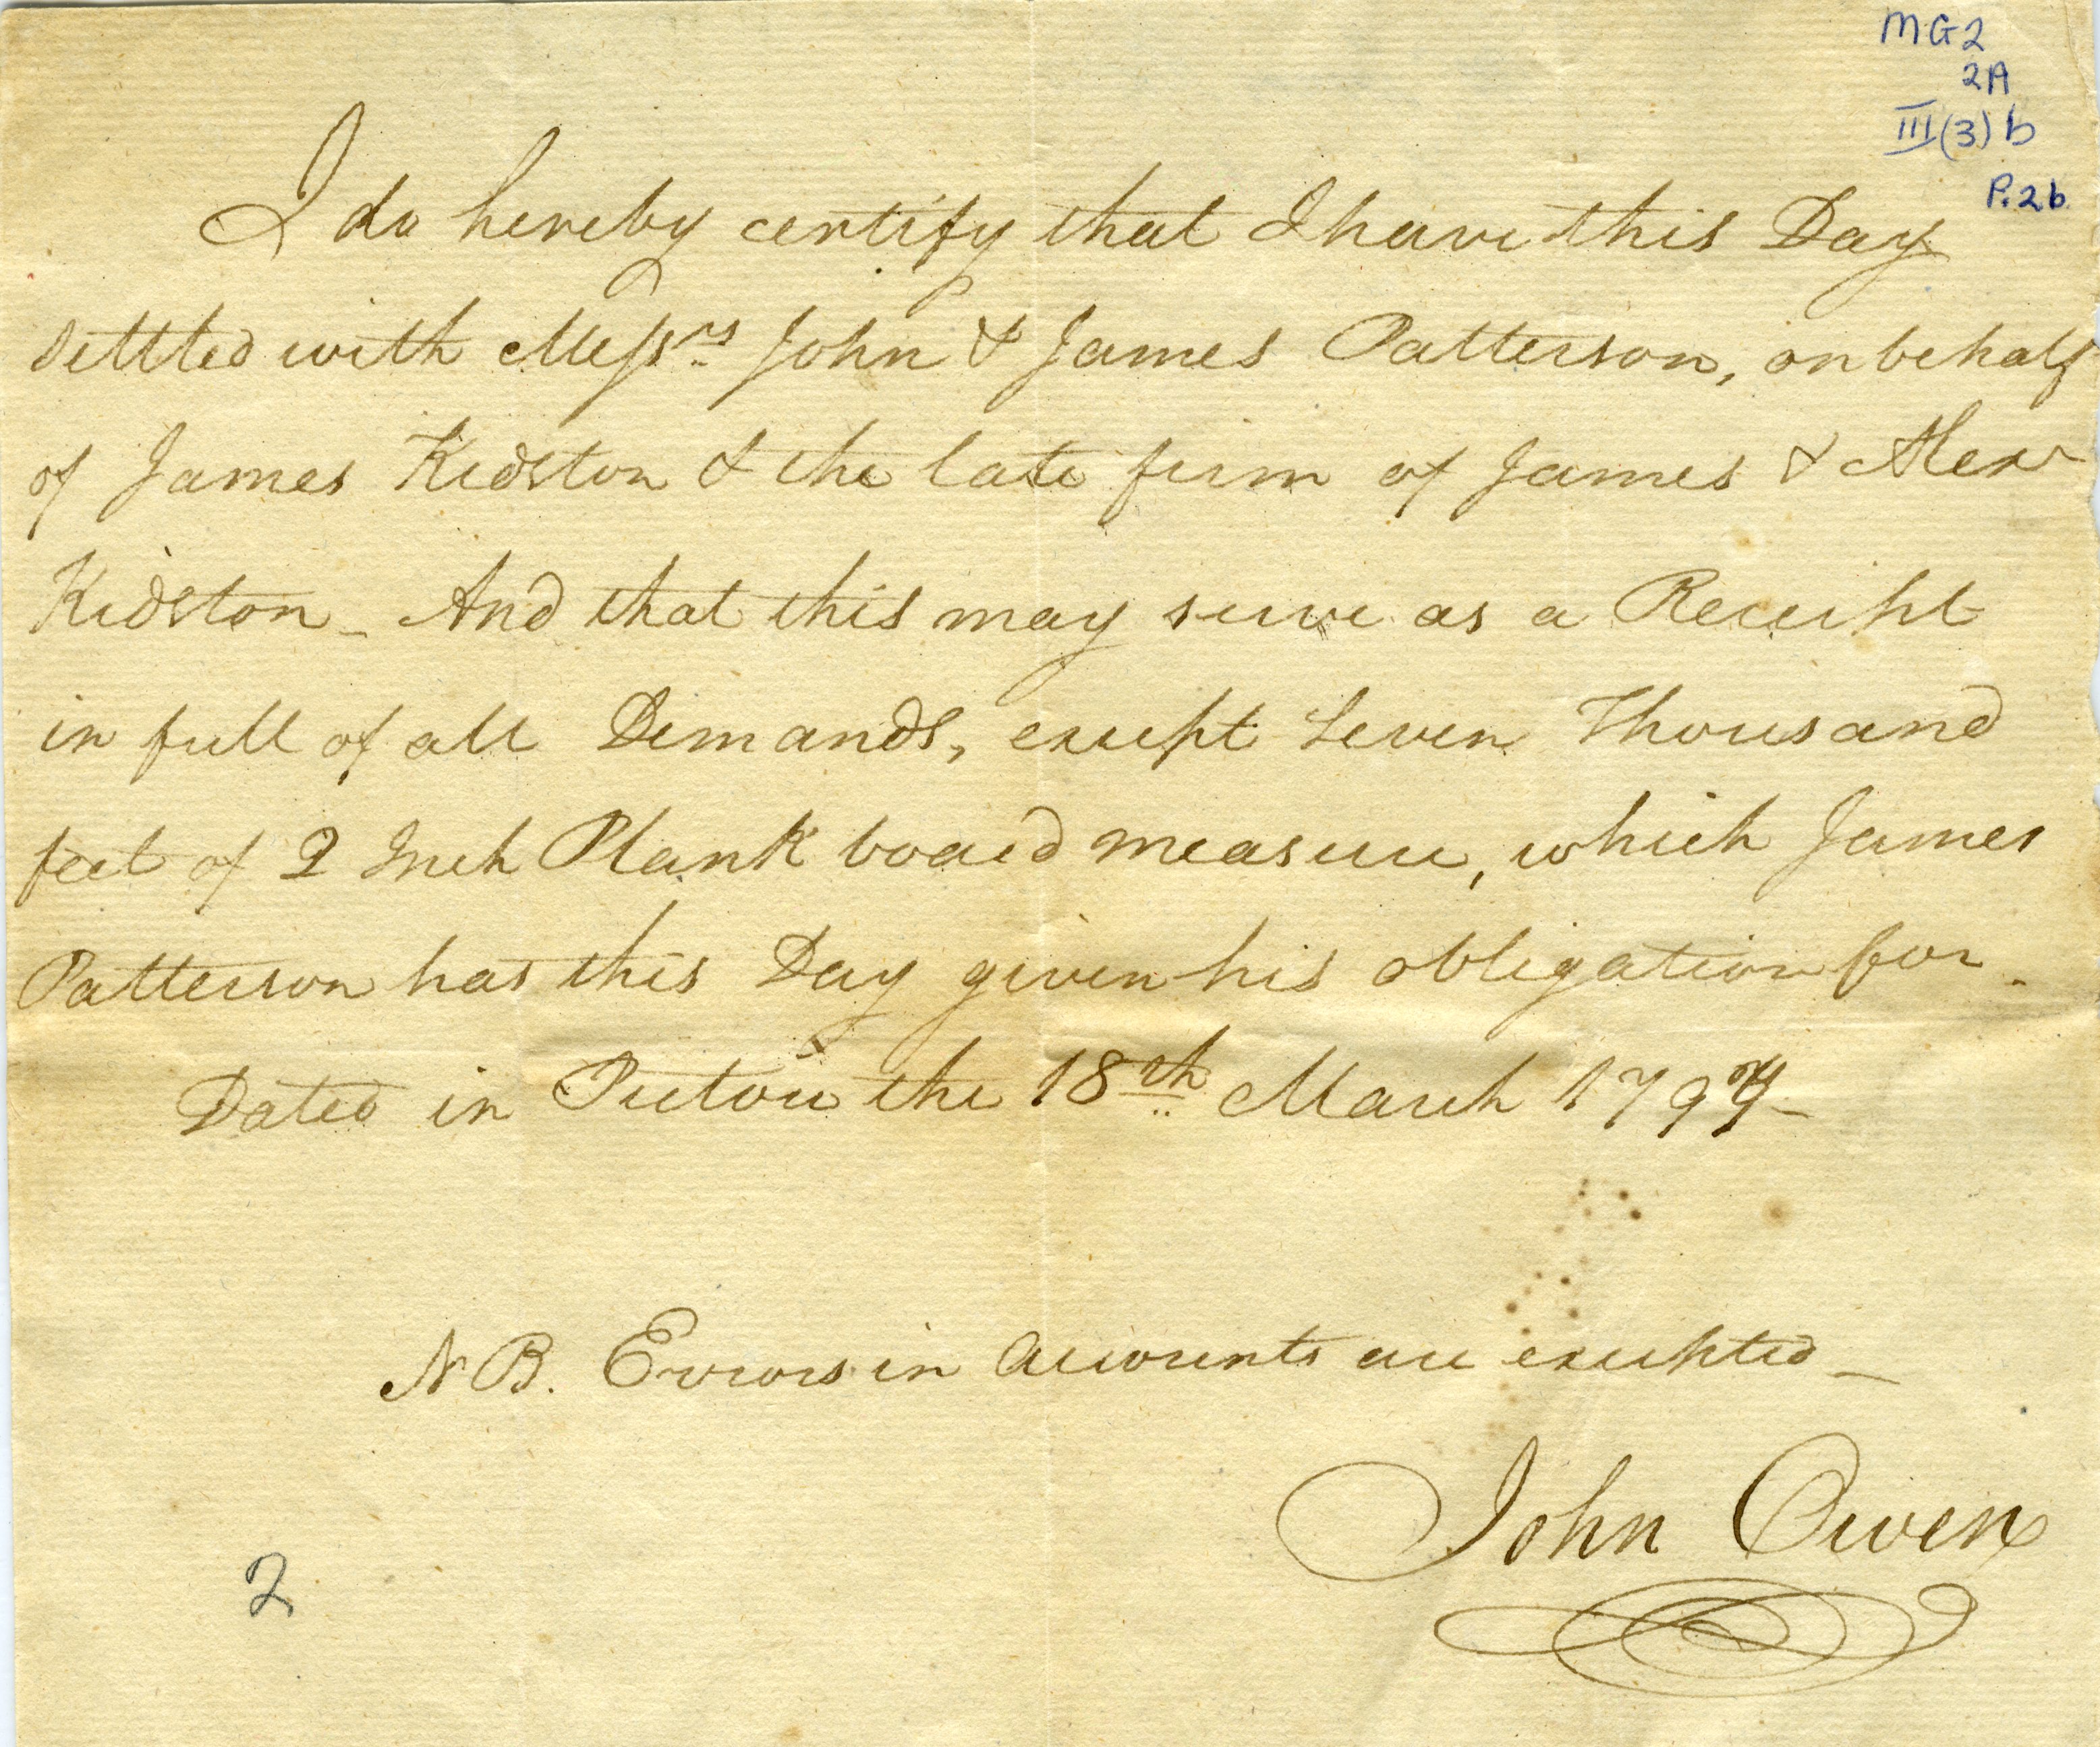 MG2
2A
III(3)b
P.2b
I do hereby certify that I have this Day
settled with Messrs John & James Patterson, on behalf
of James Kidston & the late firm of James & Alexr
Kidston _ And that this may serve as a Receipt
in full of all Demands, except Seven Thousand
feet of 2 Inch Plank board measure, which James
Patterson has this Day given his obligation for.
Dated in Pictou the 18th March 179
NB. Errors in accounts are excepted _
John Owen
2